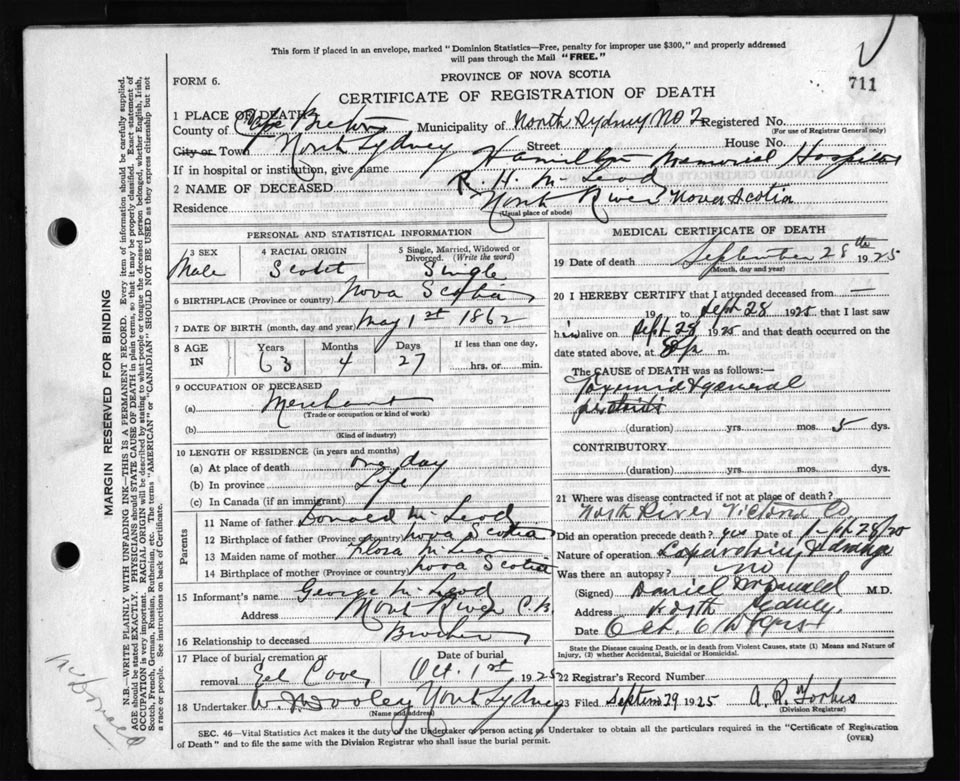 This form if placed in an envelope, marked "Dominion Statistics—Free, penalty for improper use $300," and properly addressed
will pass through the Mail "FREE."
FORM 6.
PROVINCE OF NOVA SCOTIA
711
CERTIFICATE OF REGISTRATION OF DEATH
1 PLACE OF DEATH
County of Cape Breton Municipality of North Sydney No 2 Registered No.
(For use of Registrar General only)
City or Town North Sydney Street House No.
If in hospital or institution, give name Hamilton Memorial Hospital
2 NAME OF DECEASED R. H. McLeod
Residence North River Nova Scotia
(Usual place of abode)
PERSONAL AND STATISTICAL INFORMATION
3 SEX 4 RACIAL ORIGIN 5 Single, Married, Widowed or Divorced. (Write the word)
Male Scotch Single
6 BIRTHPLACE (Province or country) Nova Scotia
7 DATE OF BIRTH (month, day and year) May 1st 1862
8 AGE IN Years Months Days If less than one day,
63 4 27 hrs. or min.
9 OCCUPATION OF DECEASED
(a) Merchant
(Trade or occupation or kind of work)
(b)
(Kind of industry)
10 LENGTH OF RESIDENCE (in years and months)
(a) At place of death one day
(b) In province Life
(c) In Canada (if an immigrant)
Parents
11 Name of father Donald McLeod
12 Birthplace of father (Province or country) Nova Scotia
13 Maiden name of mother Flora McLean
14 Birthplace of mother (Province or country) Nova Scotia
15 Informant's name George McLeod
Address North River C.B.
16 Relationship to deceased Brother
17 Place of burial, cremation or removal Date of burial
Eel Cove Oct. 1st 1925
18 Undertaker W. J. Dooley North Sydney
(Name and address)
MEDICAL CERTIFICATE OF DEATH
19 Date of death September 28th 1925
(Month, day and year)
20 I HEREBY CERTIFY that I attended deceased from —
19 to Sept 28 1925 that I last saw
him alive on Sept 28 1925 and that death occurred on the
date stated above, at 8 p m.
The CAUSE OF DEATH was as follows:—
Toxemia & general
(duration) yrs. mos. 5 dys.
CONTRIBUTORY.
(duration) yrs. mos. dys.
21 Where was disease contracted if not at place of death?
North River Victoria Co
Did an operation precede death? yes Date of Sept 28/25
Nature of operation Laparotomy & drainage
Was there an autopsy? no
(Signed) Daniel M.D.
Address North Sydney
Date Oct.
State the Disease causing Death, or in death from Violent Causes, state (1) Means and Nature of
Injury, (2) whether Accidental, Suicidal or Homicidal.
22 Registrar's Record Number
23 Filed Septem 29 1925 A. R. Forbes
(Division Registrar)
SEC. 46—Vital Statistics Act makes it the duty of the Undertaker or person acting as Undertaker to obtain all the particulars required in the "Certificate of Registration
of Death" and to file the same with the Division Registrar who shall issue the burial permit.
(OVER)
MARGIN RESERVED FOR BINDING
N.B.—WRITE PLAINLY WITH UNFADING INK—THIS IS A PERMANENT RECORD. Every item of information should be carefully supplied.
AGE should be stated EXACTLY. PHYSICIANS should STATE CAUSE OF DEATH in plain terms, so that it may be properly classified. Exact statement of
OCCUPATION is very important. RACIAL ORIGIN will be described by stating to what people or tongue the deceased person belonged, whether English, Irish,
Scotch, French, German, Russian, Ruthenian, etc. The terms "AMERICAN" or "CANADIAN" SHOULD NOT BE USED as they express citizenship but not
a race or people. See instructions on back of Certificate.